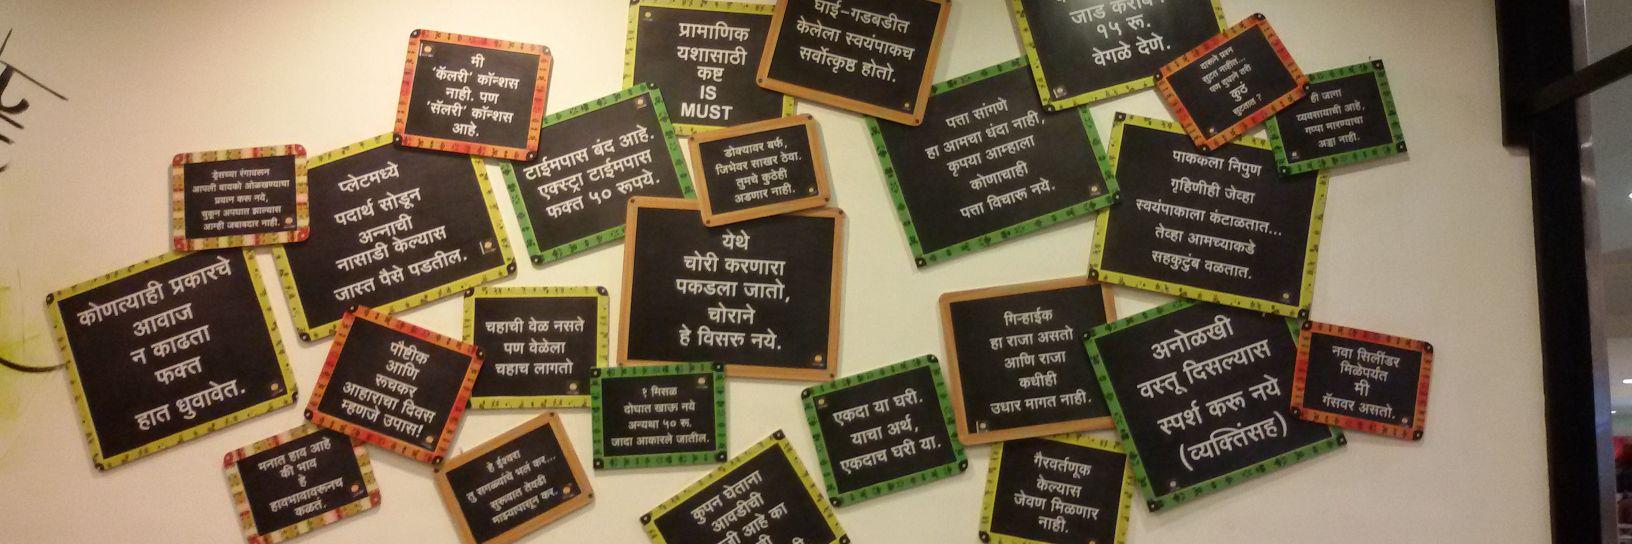 मी
'कॅलरी' कॉन्शस
नाही. पण
'सॅलरी' कॉन्शस
आहे.
प्रामाणिक
यशासाठी
कष्ट
IS
MUST
घाई-गडबडीत
केलेला स्वयंपाकच
सर्वोत्कृष्ठ होतो.
जाड
१५ रु.
वेगळे देणे.
दारूने प्रश्न
सुटत नाहीत...
पण दुधाने तरी
कुठे
सुटतात ?
ही जागा
व्यवसायाची आहे,
गप्पा मारण्याचा
अड्डा नाही.
ड्रेसच्या रंगावरून
आपली बायको ओळखण्याचा
प्रयत्न करू नये,
चुकून अपघात झाल्यास
आम्ही जबाबदार नाही.
प्लेटमध्ये
पदार्थ सोडून
अन्नाची
नासाडी केल्यास
जास्त पैसे पडतील.
टाईमपास बंद आहे.
एक्स्ट्रा टाईमपास
फक्त ५० रूपये.
डोक्यावर बर्फ,
जिभेवर साखर ठेवा.
तुमचे कुठेही
अडणार नाही.
पत्ता सांगणे
हा आमचा धंदा नाही,
कृपया आम्हाला
कोणाचाही
पत्ता विचारू नये.
पाककला निपुण
गृहिणीही जेव्हा
स्वयंपाकाला कंटाळतात...
तेव्हा आमच्याकडे
सहकुटुंब वळतात.
कोणत्याही प्रकारचे
आवाज
न काढता
फक्त
हात धुवावेत.
पौष्टीक
आणि
रूचकर
आहाराचा दिवस
म्हणजे उपास!
चहाची वेळ नसते
पण वेळेला
चहाच लागतो
येथे
चोरी करणारा
पकडला जातो,
चोराने
हे विसरू नये.
गिऱ्हाईक
हा राजा असतो
आणि राजा
कधीही
उधार मागत नाही.
अनोळखी
वस्तू दिसल्यास
स्पर्श करू नये
(व्यक्तिंसह)
नवा सिलींडर
मिळेपर्यंत
मी
गॅसवर असतो.
मनात हाव आहे
की भाव
हे
हावभावावरूनच
कळतं.
हे ईश्वरा
तु सगळ्यांचे भलं कर...
सुरूवात तेवढी
माझ्यापासून कर.
१ मिसळ
दोघात खाऊ नये
अन्यथा ५० रू.
जादा आकारले जातील.
एकदा या घरी.
याचा अर्थ,
एकदाच घरी या.
कुपन घेताना
आवडीची
आहे का
गैरवर्तणूक
केल्यास
जेवण मिळणार
नाही.